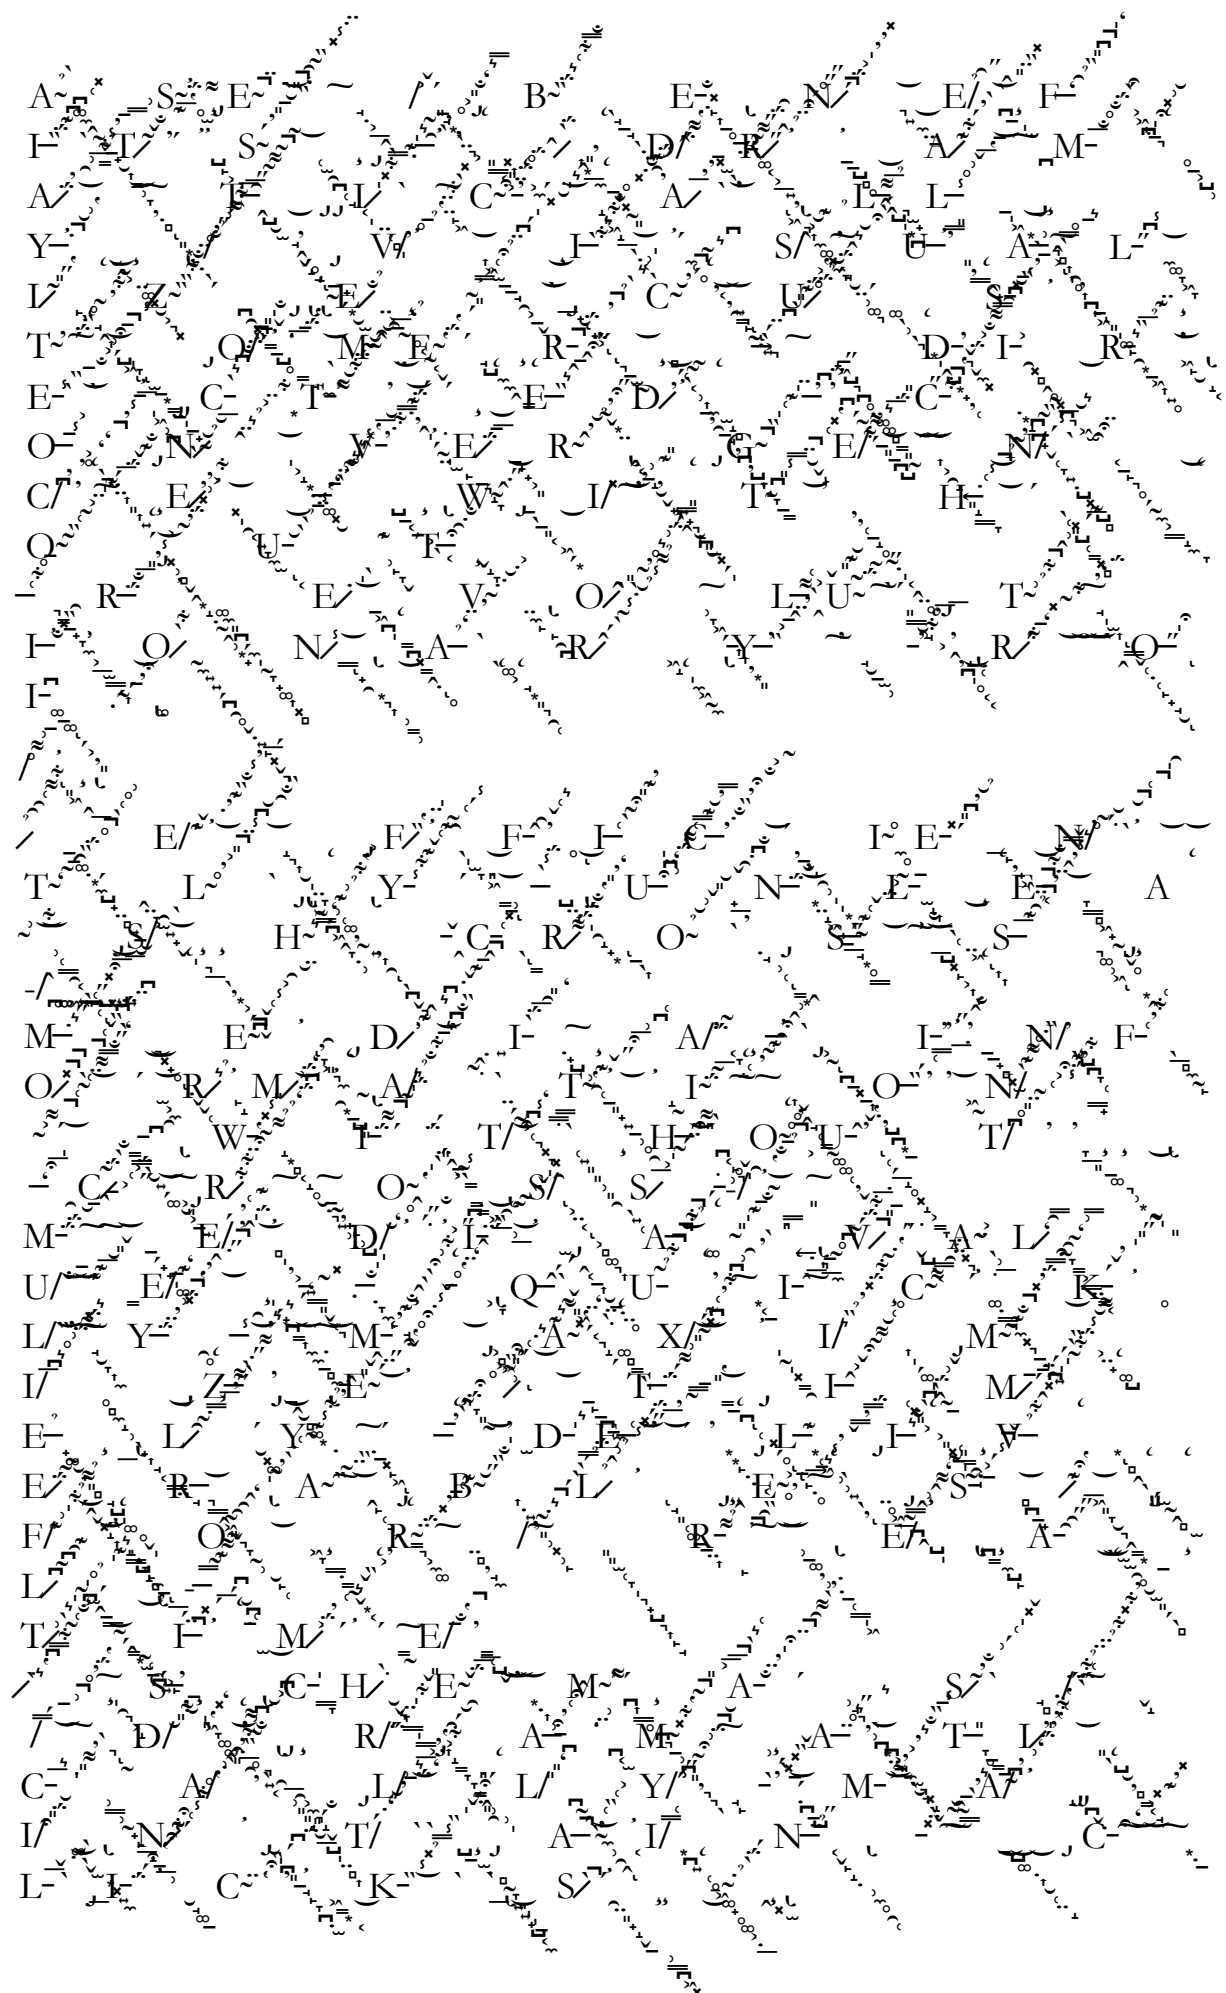 ASE BENEF
ITS DRAM
ATICALL
Y VISUAL
IZE CUS
TOMER DIR
ECTED C
ONVERGEN
CE WITH
OUT
REVOLUT
IONARY RO
I
EFFICIEN
TLY UNLEA
SH CROSS
-
MEDIA INF
ORMATION
WITHOUT
CROSS-
MEDIA VAL
UE QUICK
LY MAXIM
IZE TIM
ELY DELIV
ERABLES
FOR REA
L
TIME
SCHEMAS
DRAMATI
CALLY MA
INTAIN C
LICKS